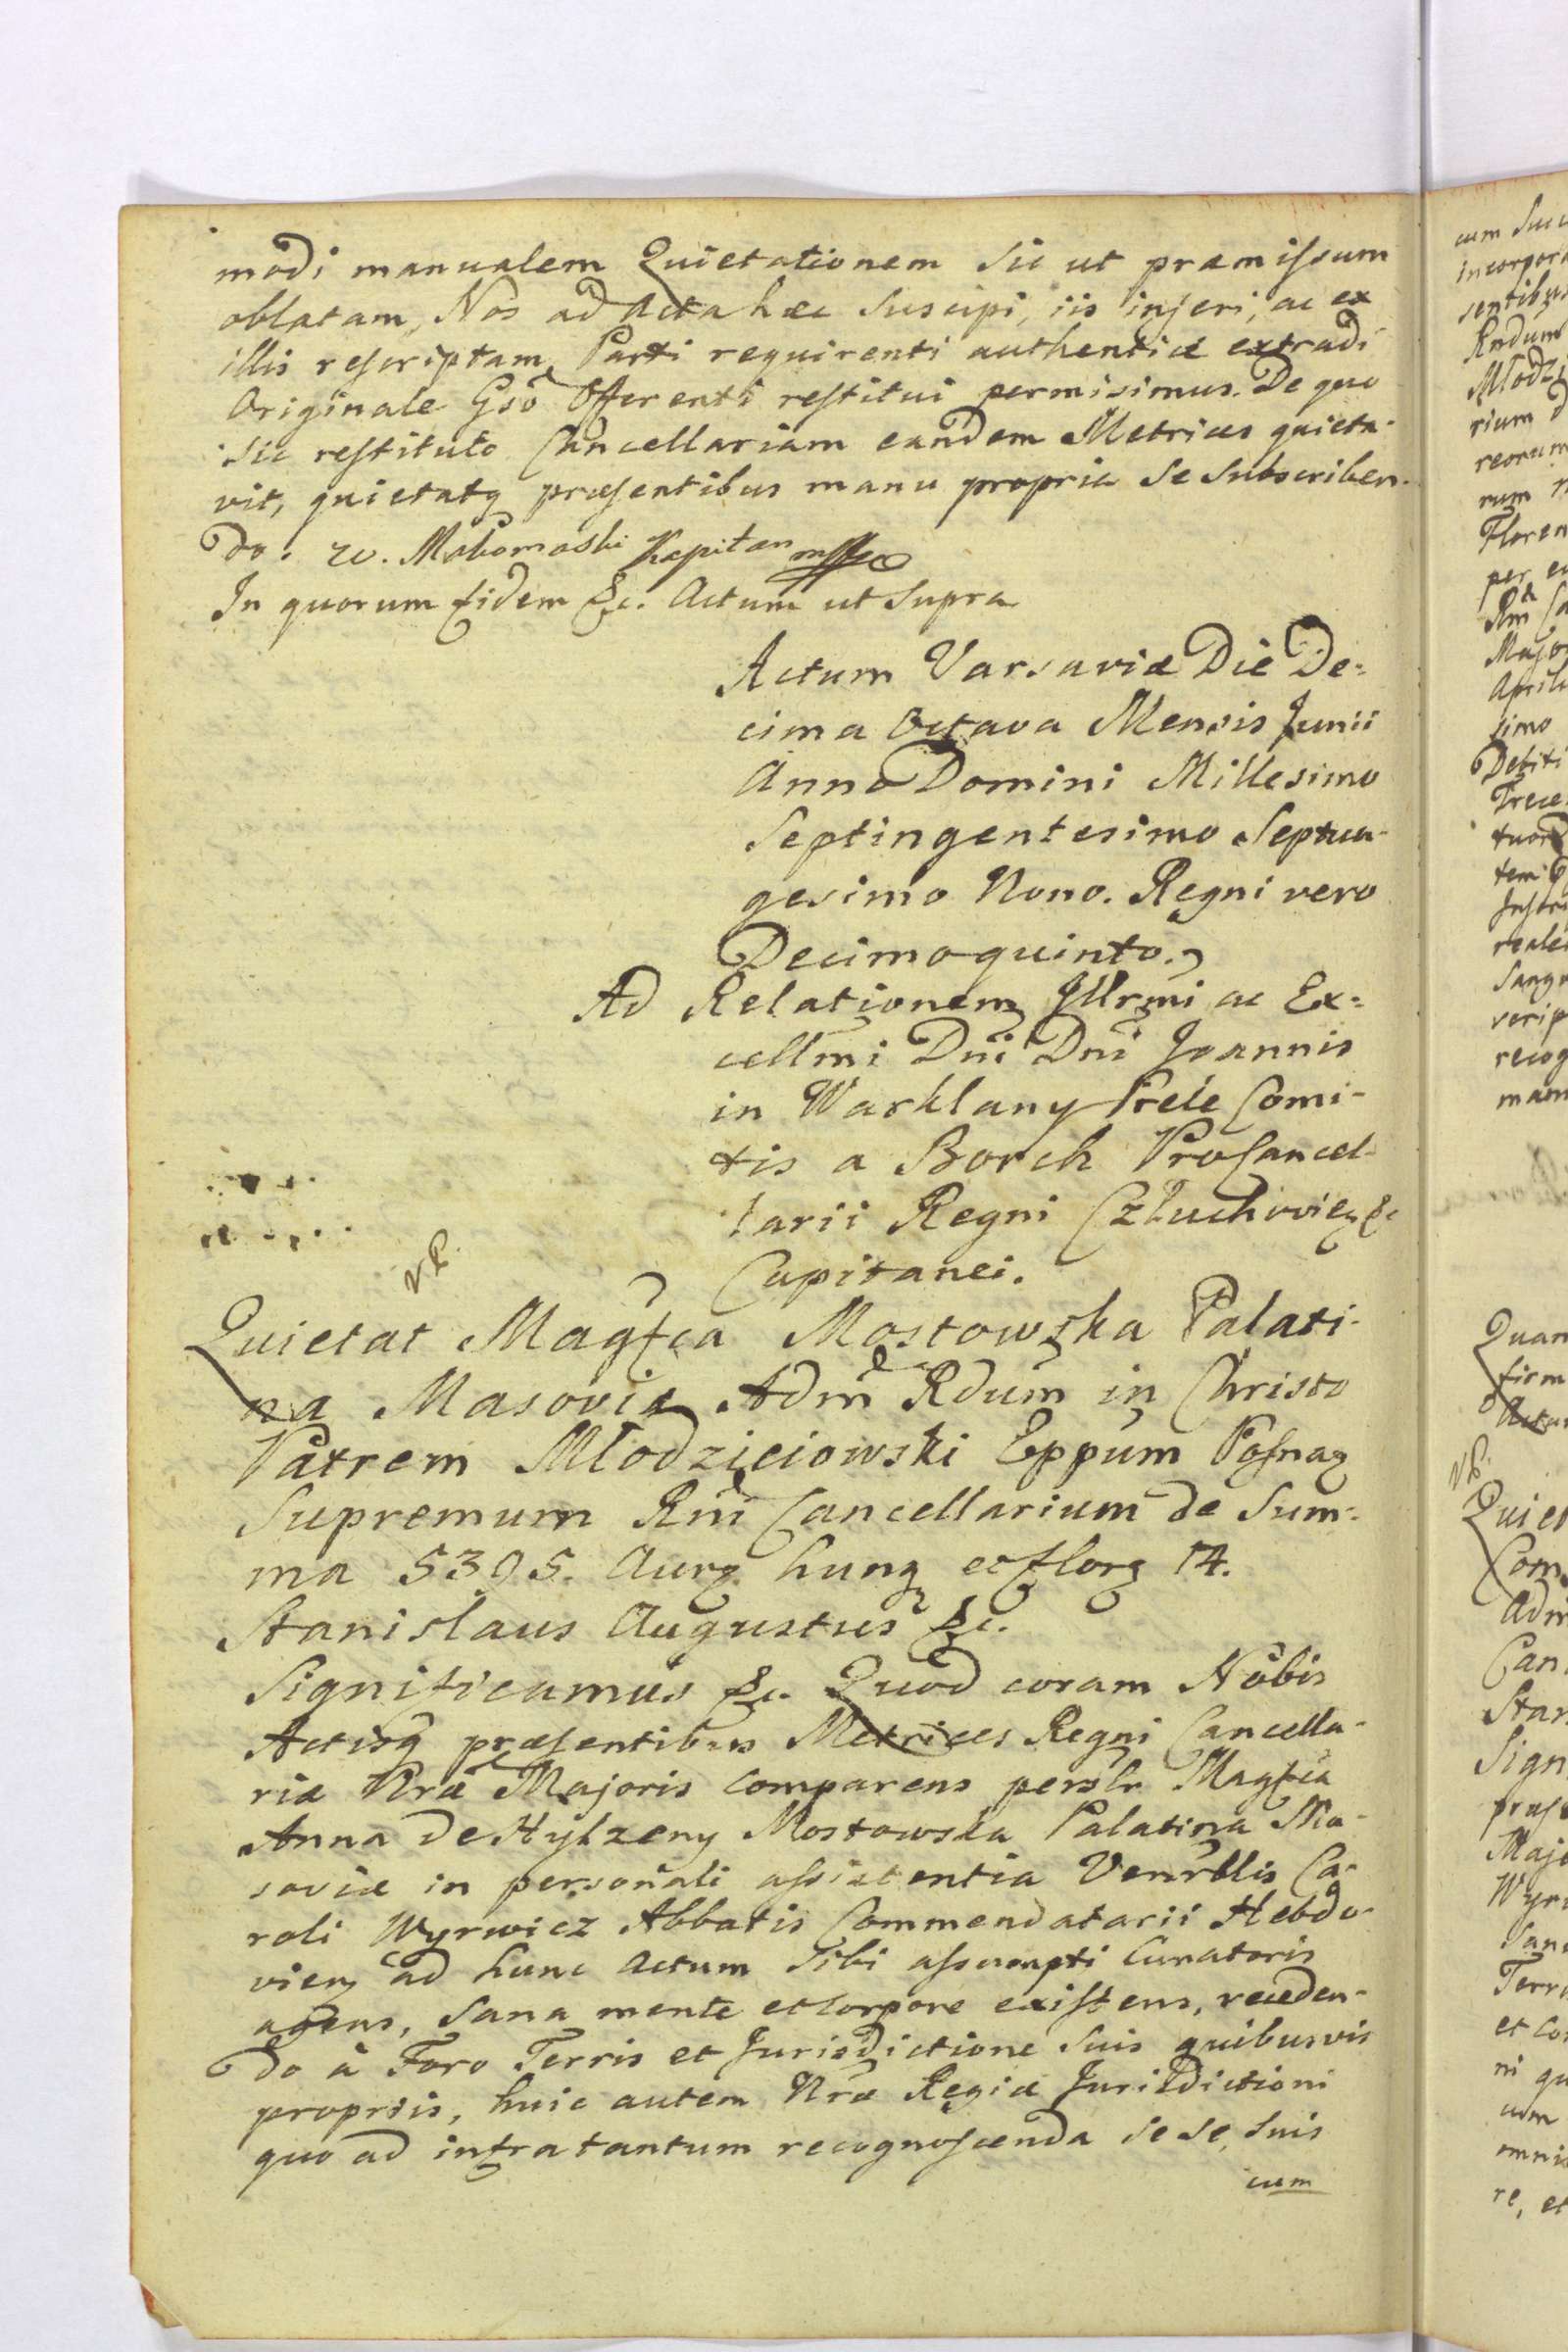 modi manualem Quietationem sic ut præmissum
oblatam, Nos ad Acta hæc suscipi, iis inseri, ac ex
illis rescriptam Parti requirenti authenticè extradi
Originale Gso Offerenti restitui permisimus. De quo
sic restituto Cancellariam eandem Metrices quieta-
vit, quietatq præsentibus manu propria se subscriben-
do. w. Makomaski Kapitan mpp
In quorum fidem &c. Actum ut supra
Actum Varsaviæ Die De-
cima Octava Mensis Junii
Anno Domini Millesimo
Septingentesimo Septua-
gesimo Nono. Regni vero
Decimo quinto.
Ad Relationem Illrmi ac Ex-
cellmi Dni Dni Joannis
in Warklany Prele Comi-
tis a Borch ProCancel-
larii Regni Człuchovien &c
Capitanei.
Quietat Magfca Mostowska Palati-
na Masoviæ Adm Rdum in Christo
Patrem Młodzieiowski Eppum Posnan
Supremum Rni Cancellarium de Sum-
ma 5395. Aur. hung et flor. 14.
Stanislaus Augustus &c.
Significamus &c. Quod coram Nobis
Actisq præsentibus Metrices Regni Cancella-
riæ Nræ Majoris comparens perslr Magfca
Anna de Hylzeny Mostowska Palatina Ma-
soviæ in personali assistentia Venrblis Ca-
roli Wyrwicz Abbatis Commendatarii Hebdo-
vien ad hunc Actum sibi assumpti Curatoris
agens, sana mente et corpore existens, receden-
do à Foro Terris et Jurisdictione suis quibusvis
propriis, huic autem Nræ Regiæ Jurisdictioni
quo ad infra tantum recognoscenda se se, suis
cum